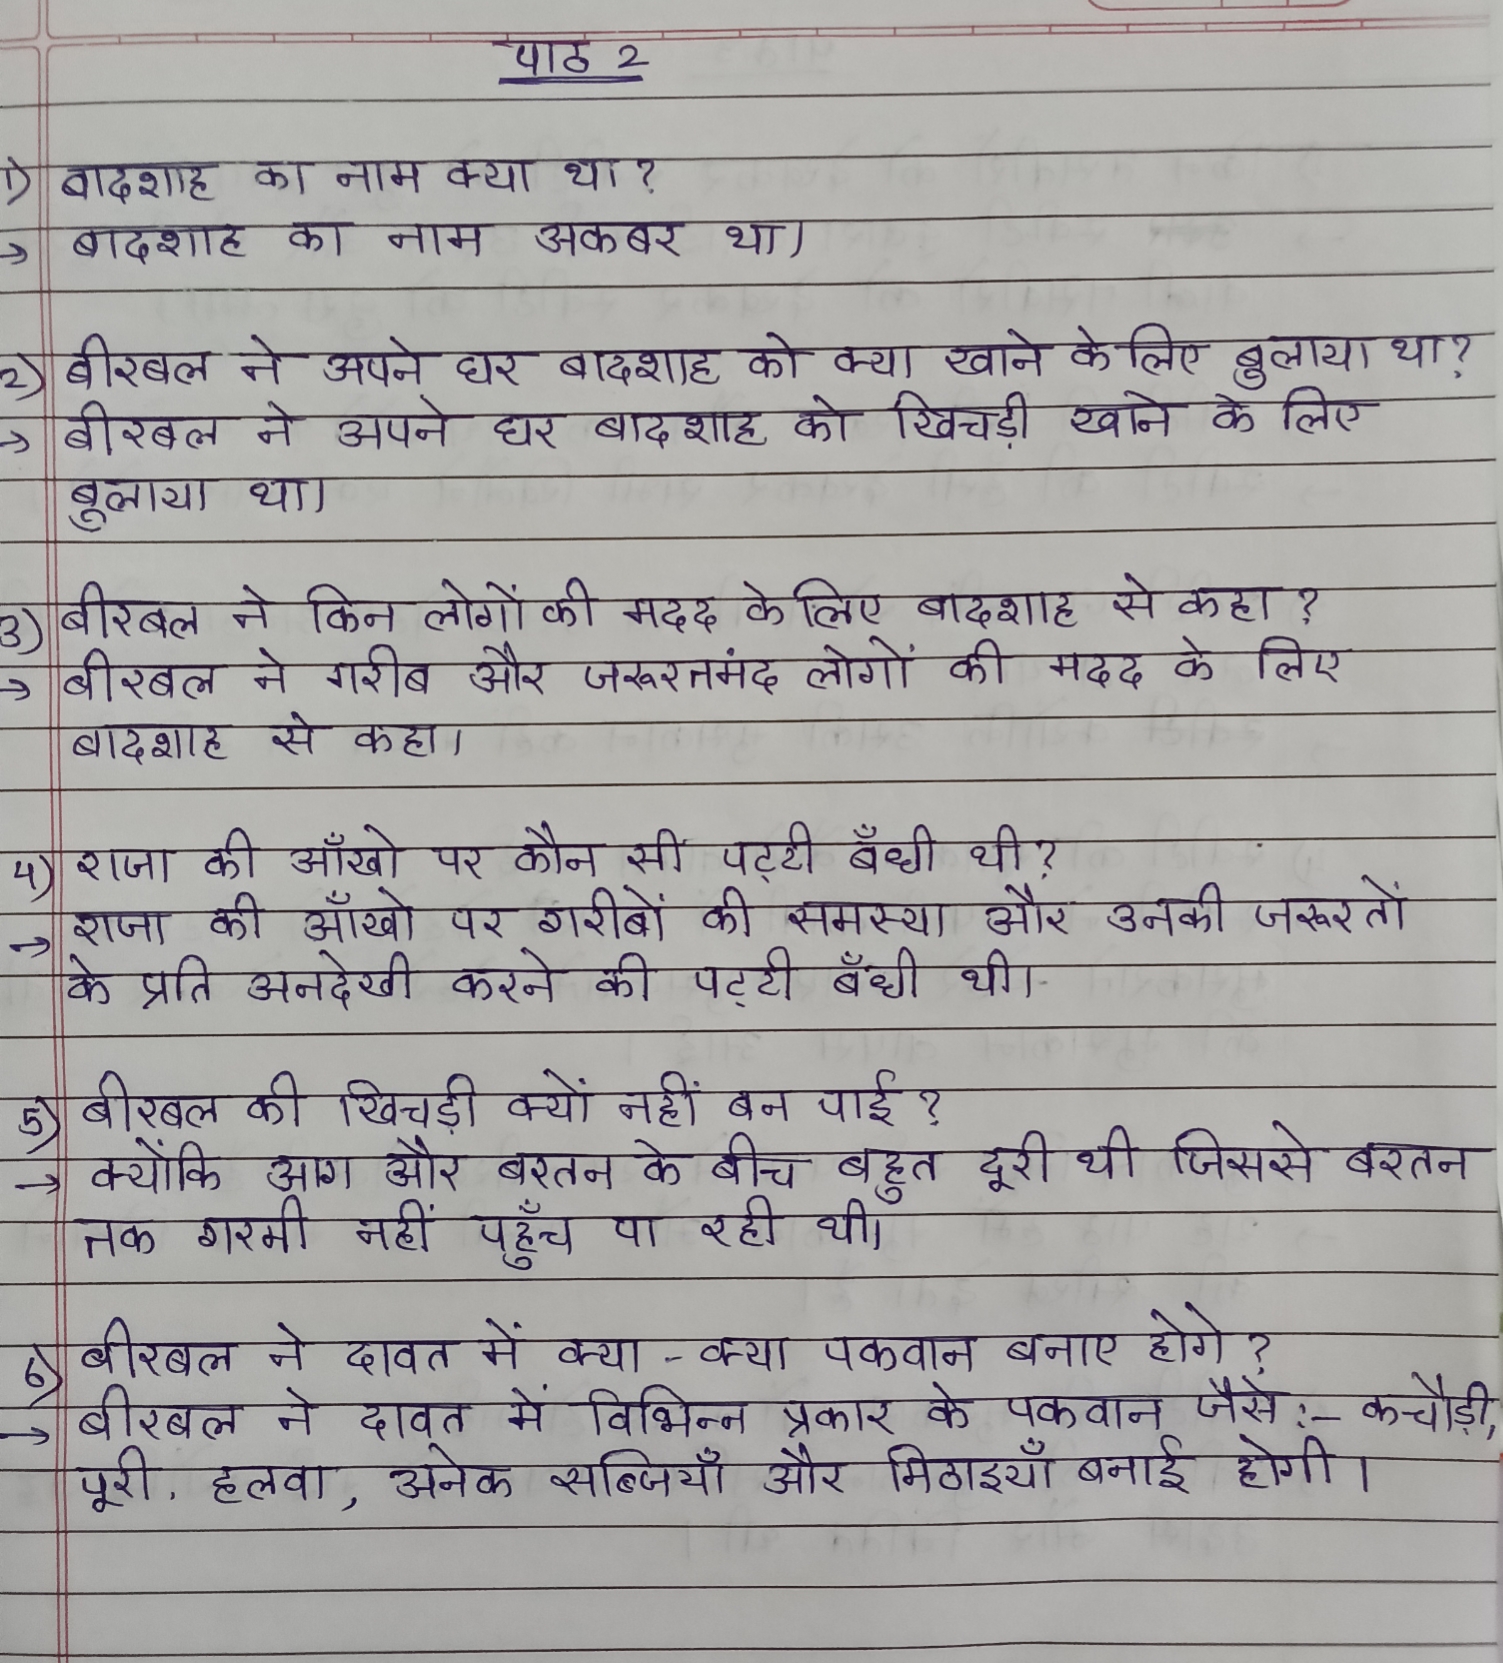 पाठ 2
1) बादशाह का नाम क्या था?
→ बादशाह का नाम अकबर था।
2) बीरबल ने अपने घर बादशाह को क्या खाने के लिए बुलाया था?
→ बीरबल ने अपने घर बादशाह को खिचड़ी खाने के लिए
बुलाया था।
3) बीरबल ने किन लोगों की मदद के लिए बादशाह से कहा?
→ बीरबल ने गरीब और जरूरतमंद लोगों की मदद के लिए
बादशाह से कहा।
4) राजा की आँखो पर कौन सी पट्टी बँधी थी?
→ राजा की आँखो पर गरीबों की समस्या और उनकी जरूरतों
के प्रति अनदेखी करने की पट्टी बँधी थी।
5) बीरबल की खिचड़ी क्यों नहीं बन पाई?
→ क्योंकि आग और बरतन के बीच बहुत दूरी थी जिससे बरतन
तक गरमी नहीं पहुँच पा रही थी।
6) बीरबल ने दावत में क्या - क्या पकवान बनाए होगे?
→ बीरबल ने दावत में विभिन्न प्रकार के पकवान जैसे :- कचौड़ी,
पूरी, हलवा, अनेक सब्जियाँ और मिठाइयाँ बनाई होगी।